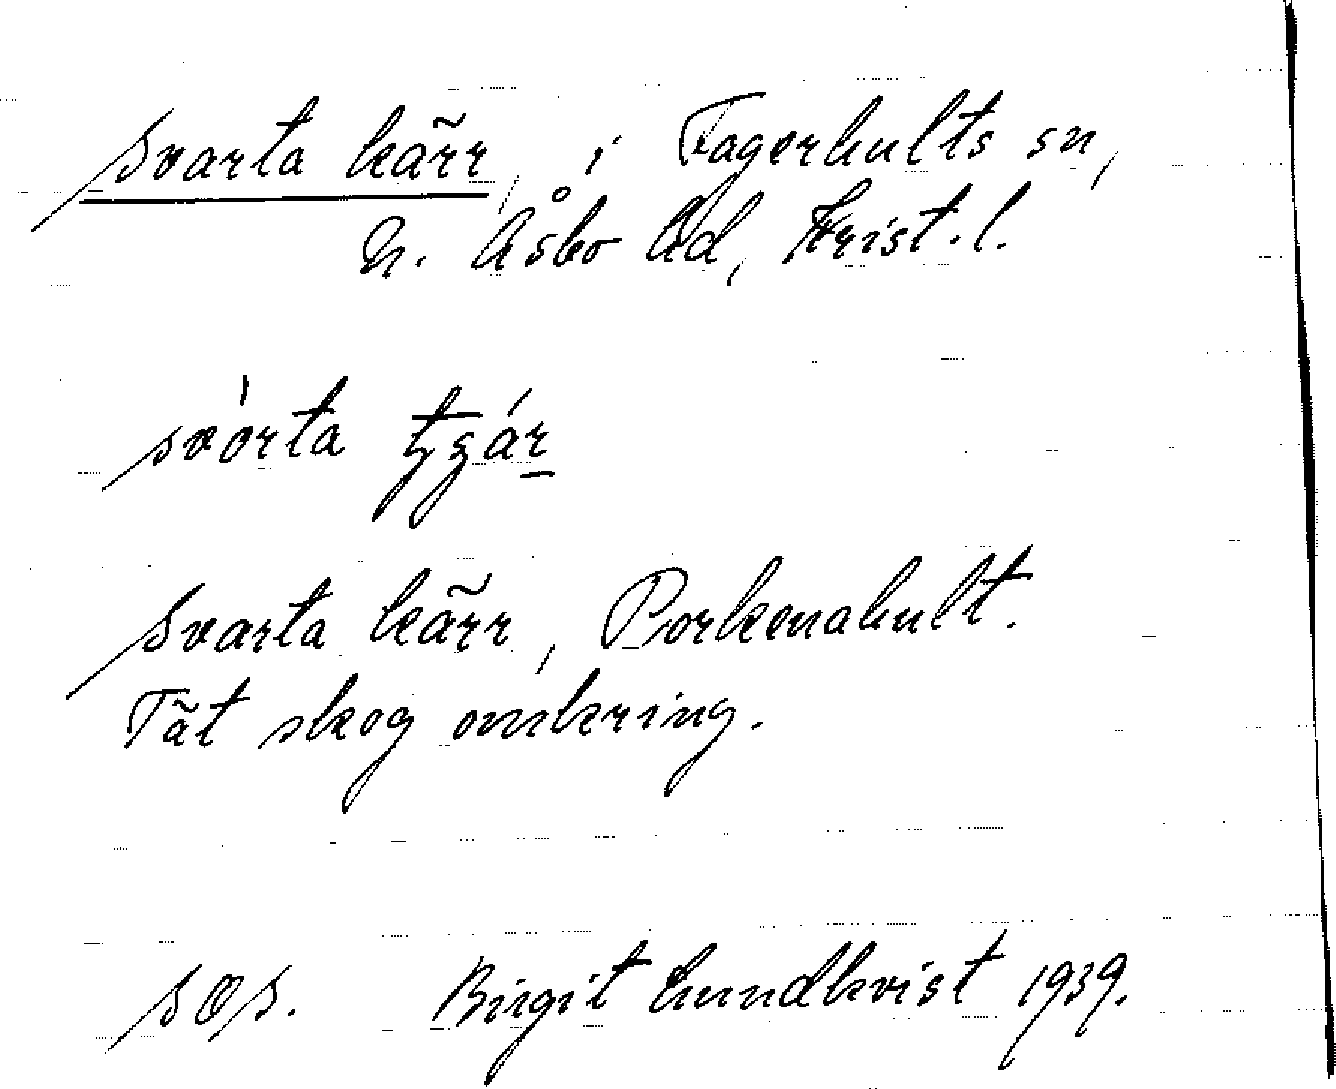 Svarta kärr, i Fagerhults sn,
N. Åsbo hd, Krist. l.
svòrta tʒár
Svarta kärr, Porkenahult.
Tät skog omkring.
SOS. Birgit Lundkvist 1939.